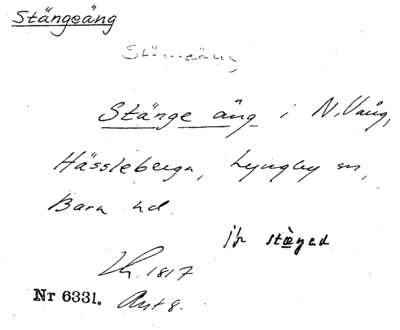 Stängeäng
Stängeäng
Stänge äng i N. Vång,
Hässleberga, Lyngby sn,
Bara hd.
jfr stæ̀ŋed
Lh. 1817
Nr 6331. Akt 8.